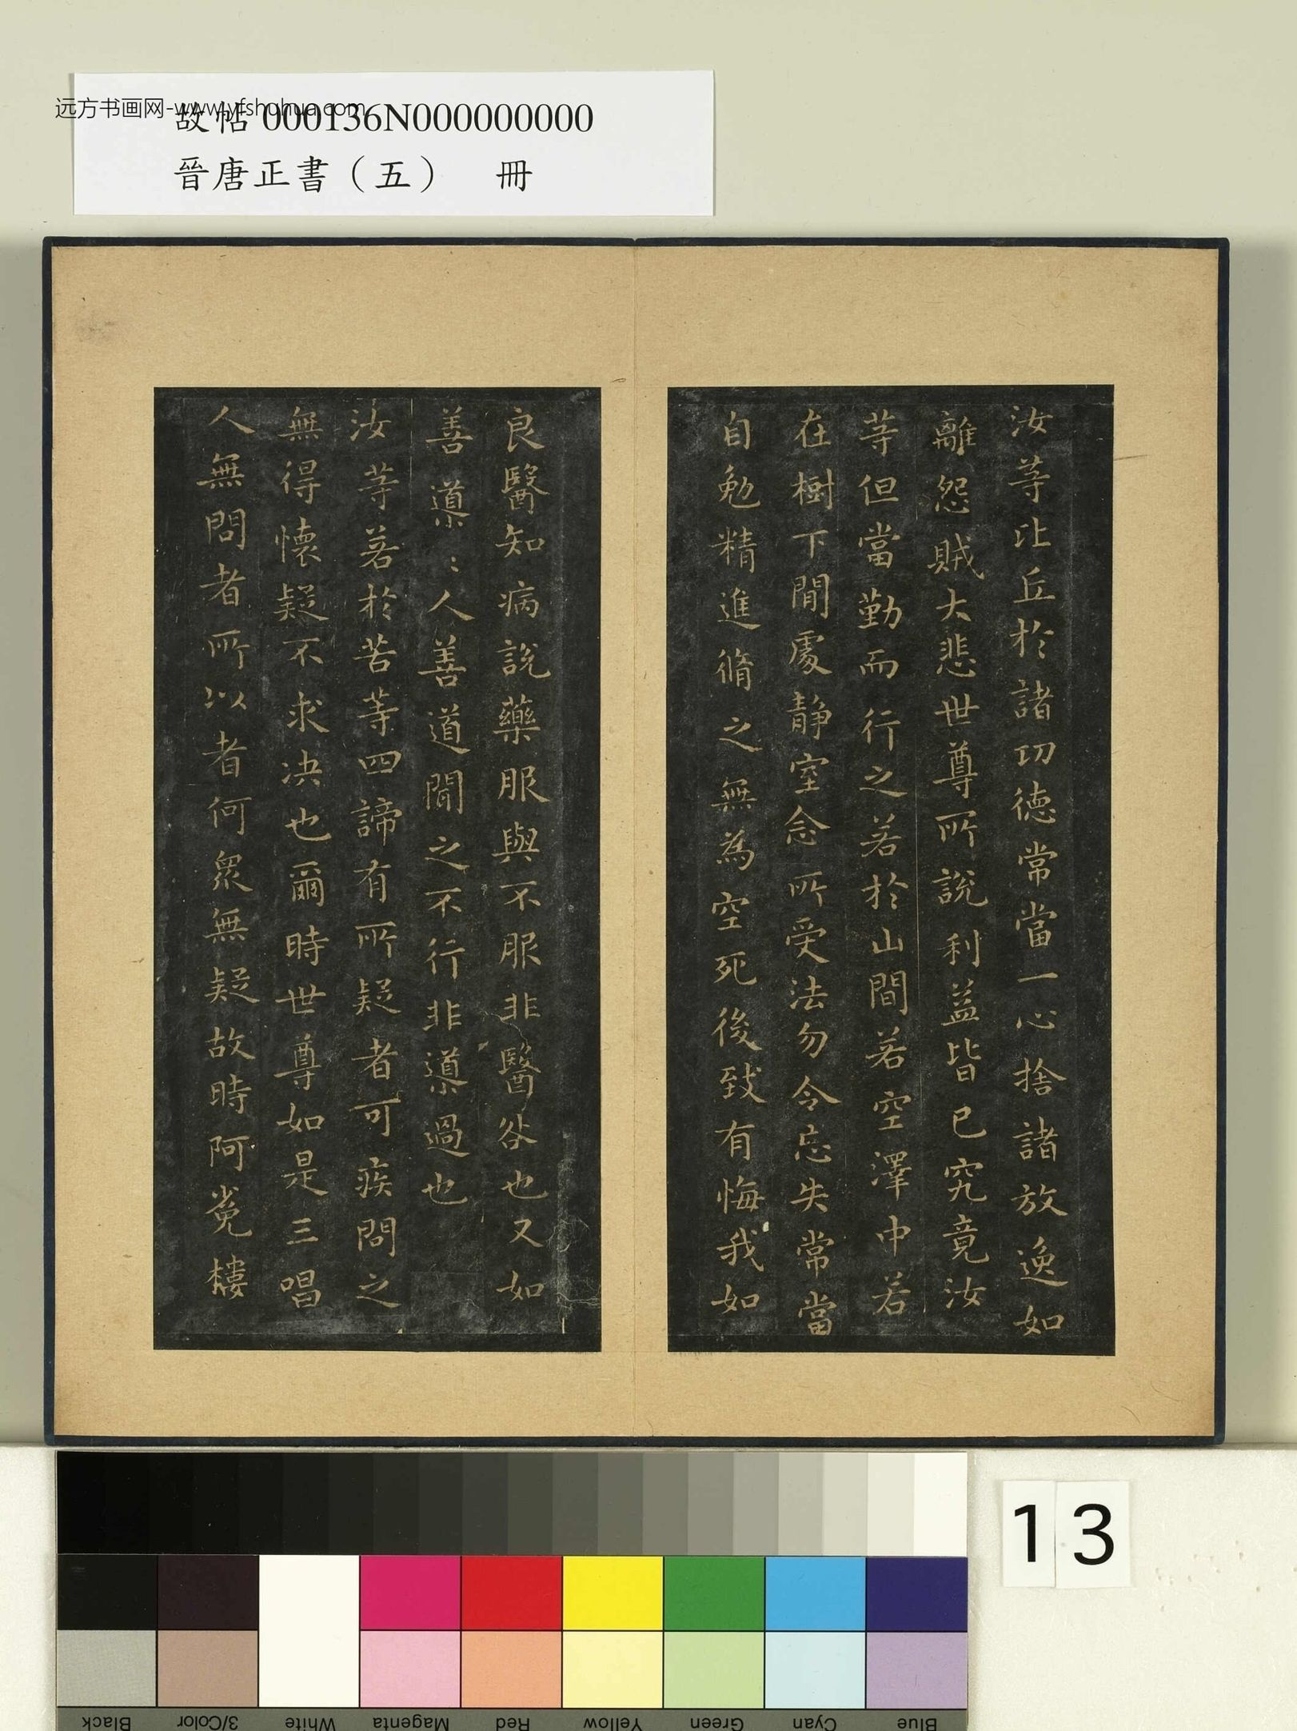 远方书画网-www.yfshuhua.com
故帖 000136N000000000
晉唐正書（五） 冊
汝等比丘於諸功德常當一心捨諸放逸如
離怨賊大悲世尊所說利益皆已究竟汝
等但當勤而行之若於山間若空澤中若
在樹下閒處靜室念所受法勿令忘失常當
自勉精進脩之無為空死後致有悔我如
良醫知病說藥服與不服非醫咎也又如
善導：人善道聞之不行非導過也
汝等若於苦等四諦有所疑者可疾問之
無得懷疑不求決也爾時世尊如是三唱
人無問者所以者何眾無疑故時阿㝹樓
13
Black
3/Color
White
Magenta
Red
Yellow
Green
Cyan
Blue